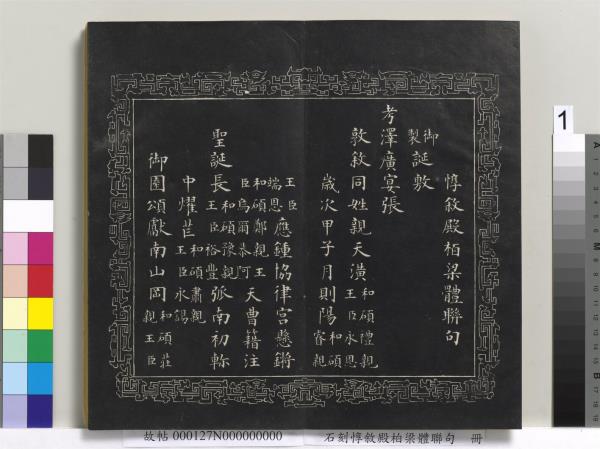 惇敘殿栢梁體聯句
御製誕敷
考澤廣宴張
敦敘同姓親天潢和碩禮親王臣永恩
歲次甲子月則陽和碩睿親
王臣端恩應鍾協律宮懸鏘
和碩鄭親王臣烏爾恭阿天曹籍注
聖誕長和碩豫親王臣裕豐弧南初軫
中燿芒和碩肅親王臣永錫
御園頌獻南山岡和碩莊親王臣
故帖 000127N000000000 石刻惇敘殿柏梁體聯句 冊
1